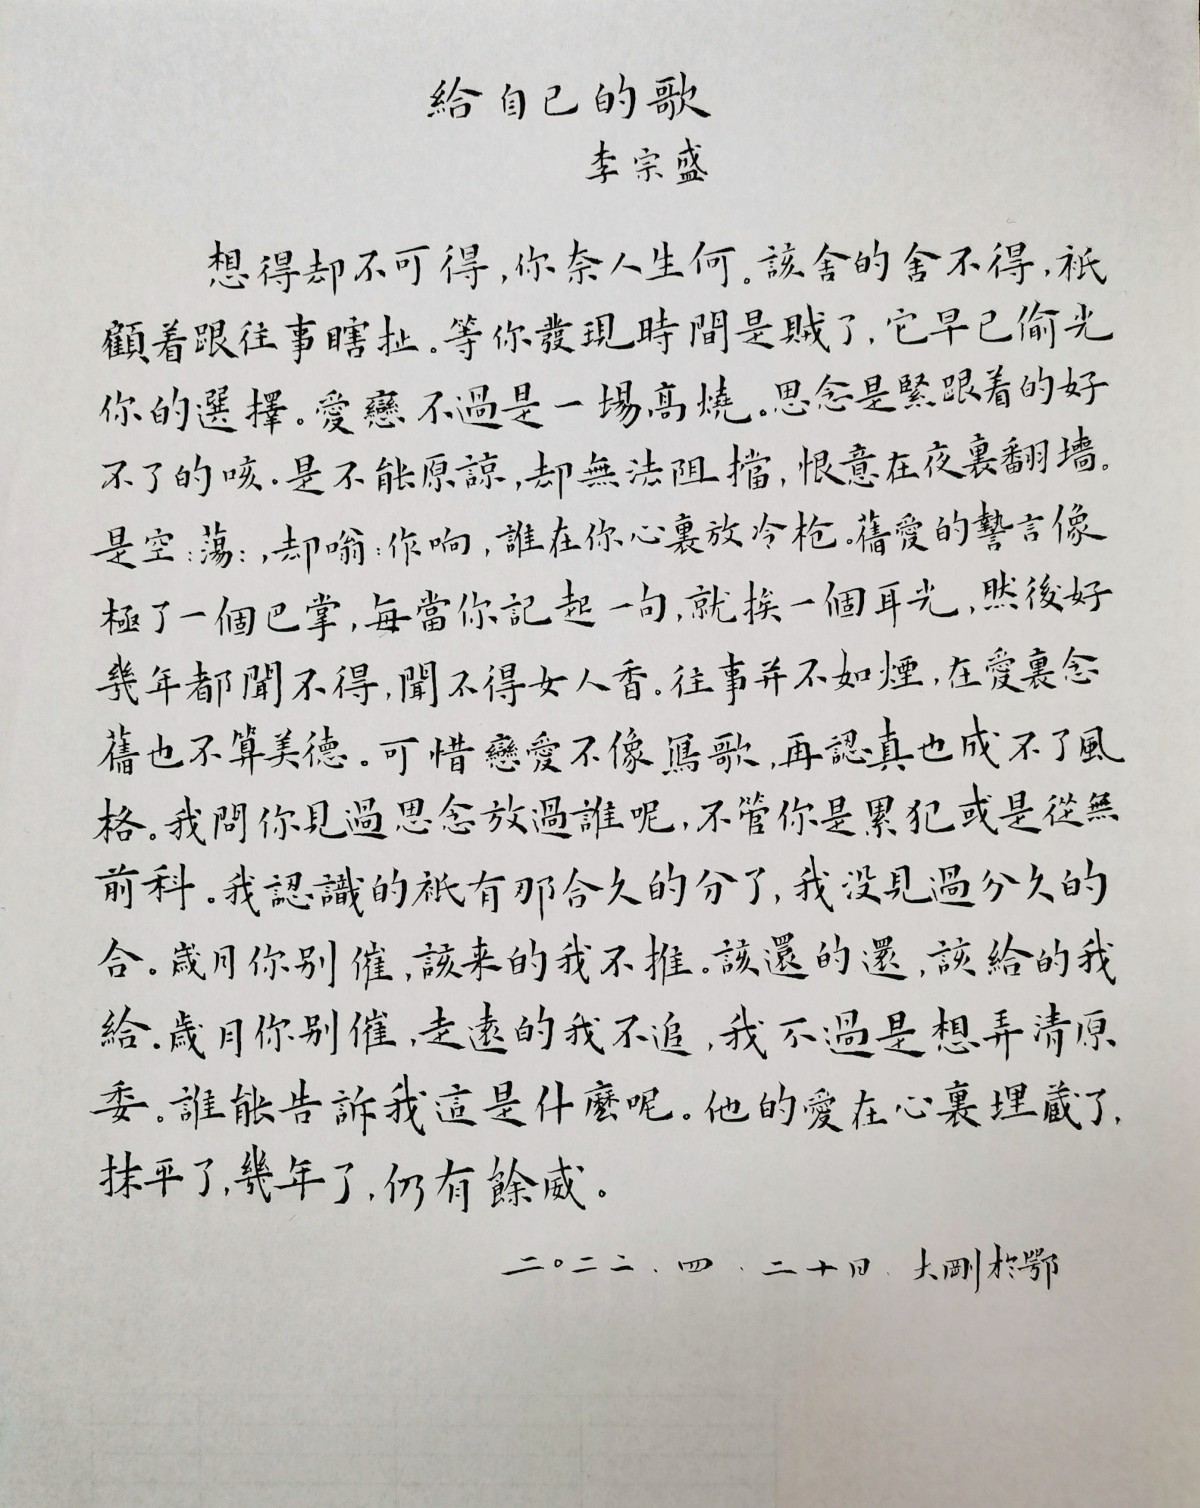 給自己的歌
李宗盛
想得却不可得，你奈人生何。該舍的舍不得，衹
顧着跟往事瞎扯。等你發現時間是賊了，它早已偷光
你的選擇。愛戀不過是一場高燒。思念是緊跟着的好
不了的咳。是不能原諒，却無法阻擋，恨意在夜裏翻墻。
是空:蕩:，却嗡:作响，誰在你心裏放冷枪。舊愛的誓言像
極了一個巴掌，每當你記起一句，就挨一個耳光，然後好
幾年都聞不得，聞不得女人香。往事并不如煙，在愛裏念
舊也不算美德。可惜戀愛不像寫歌，再認真也成不了風
格。我問你見過思念放過誰呢，不管你是累犯或是從無
前科。我認識的衹有那合久的分了，我没見過分久的
合。歲月你別催，該来的我不推。該還的還，該給的我
給。歲月你別催，走遠的我不追，我不過是想弄清原
委。誰能告訴我這是什麽呢。他的愛在心裏埋藏了，
抹平了，幾年了，仍有餘威。
二〇二二.四.二十日.大剛於鄂